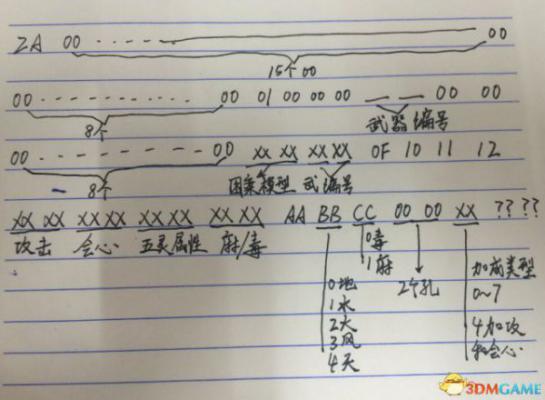 2A 00 ...... 00
15个00
00 ........ 00 01 00 00 00 __ __ 00 00
8个 武器编号
00 ........ 00 XX XX XX XX 0F 10 11 12
8个 图案模型 武编号
XX XX XX XX XX XX XX XX AA BB CC 00 00 XX ????
攻击 会心 五灵属性 麻/毒 0毒 加成类型
1麻
0地 2个孔 0~7
1水
2火 4加攻
3风 和会心
4天
3DMGAME